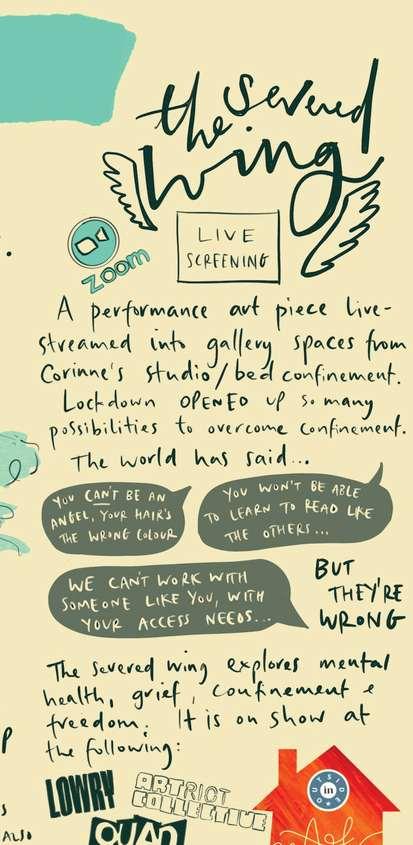 the severed
wing
LIVE
SCREENING
zoom
A performance art piece live-
streamed into gallery spaces from
Corinne's studio/bed confinement.
Lockdown OPENED UP so many
possibilities to overcome confinement.
The world has said...
YOU CAN'T BE AN
ANGEL, YOUR HAIR'S
THE WRONG COLOUR
YOU WON'T BE ABLE
TO LEARN TO READ LIKE
THE OTHERS...
WE CAN'T WORK WITH
SOMEONE LIKE YOU, WITH
YOUR ACCESS NEEDS...
BUT
THEY'RE
WRONG
The severed wing explores mental
health, grief, confinement &
freedom. It is on show at
the following:
LOWRY
ARTRIOT
COLLECTIVE
OUTSIDE
in
QUAD
ALSO